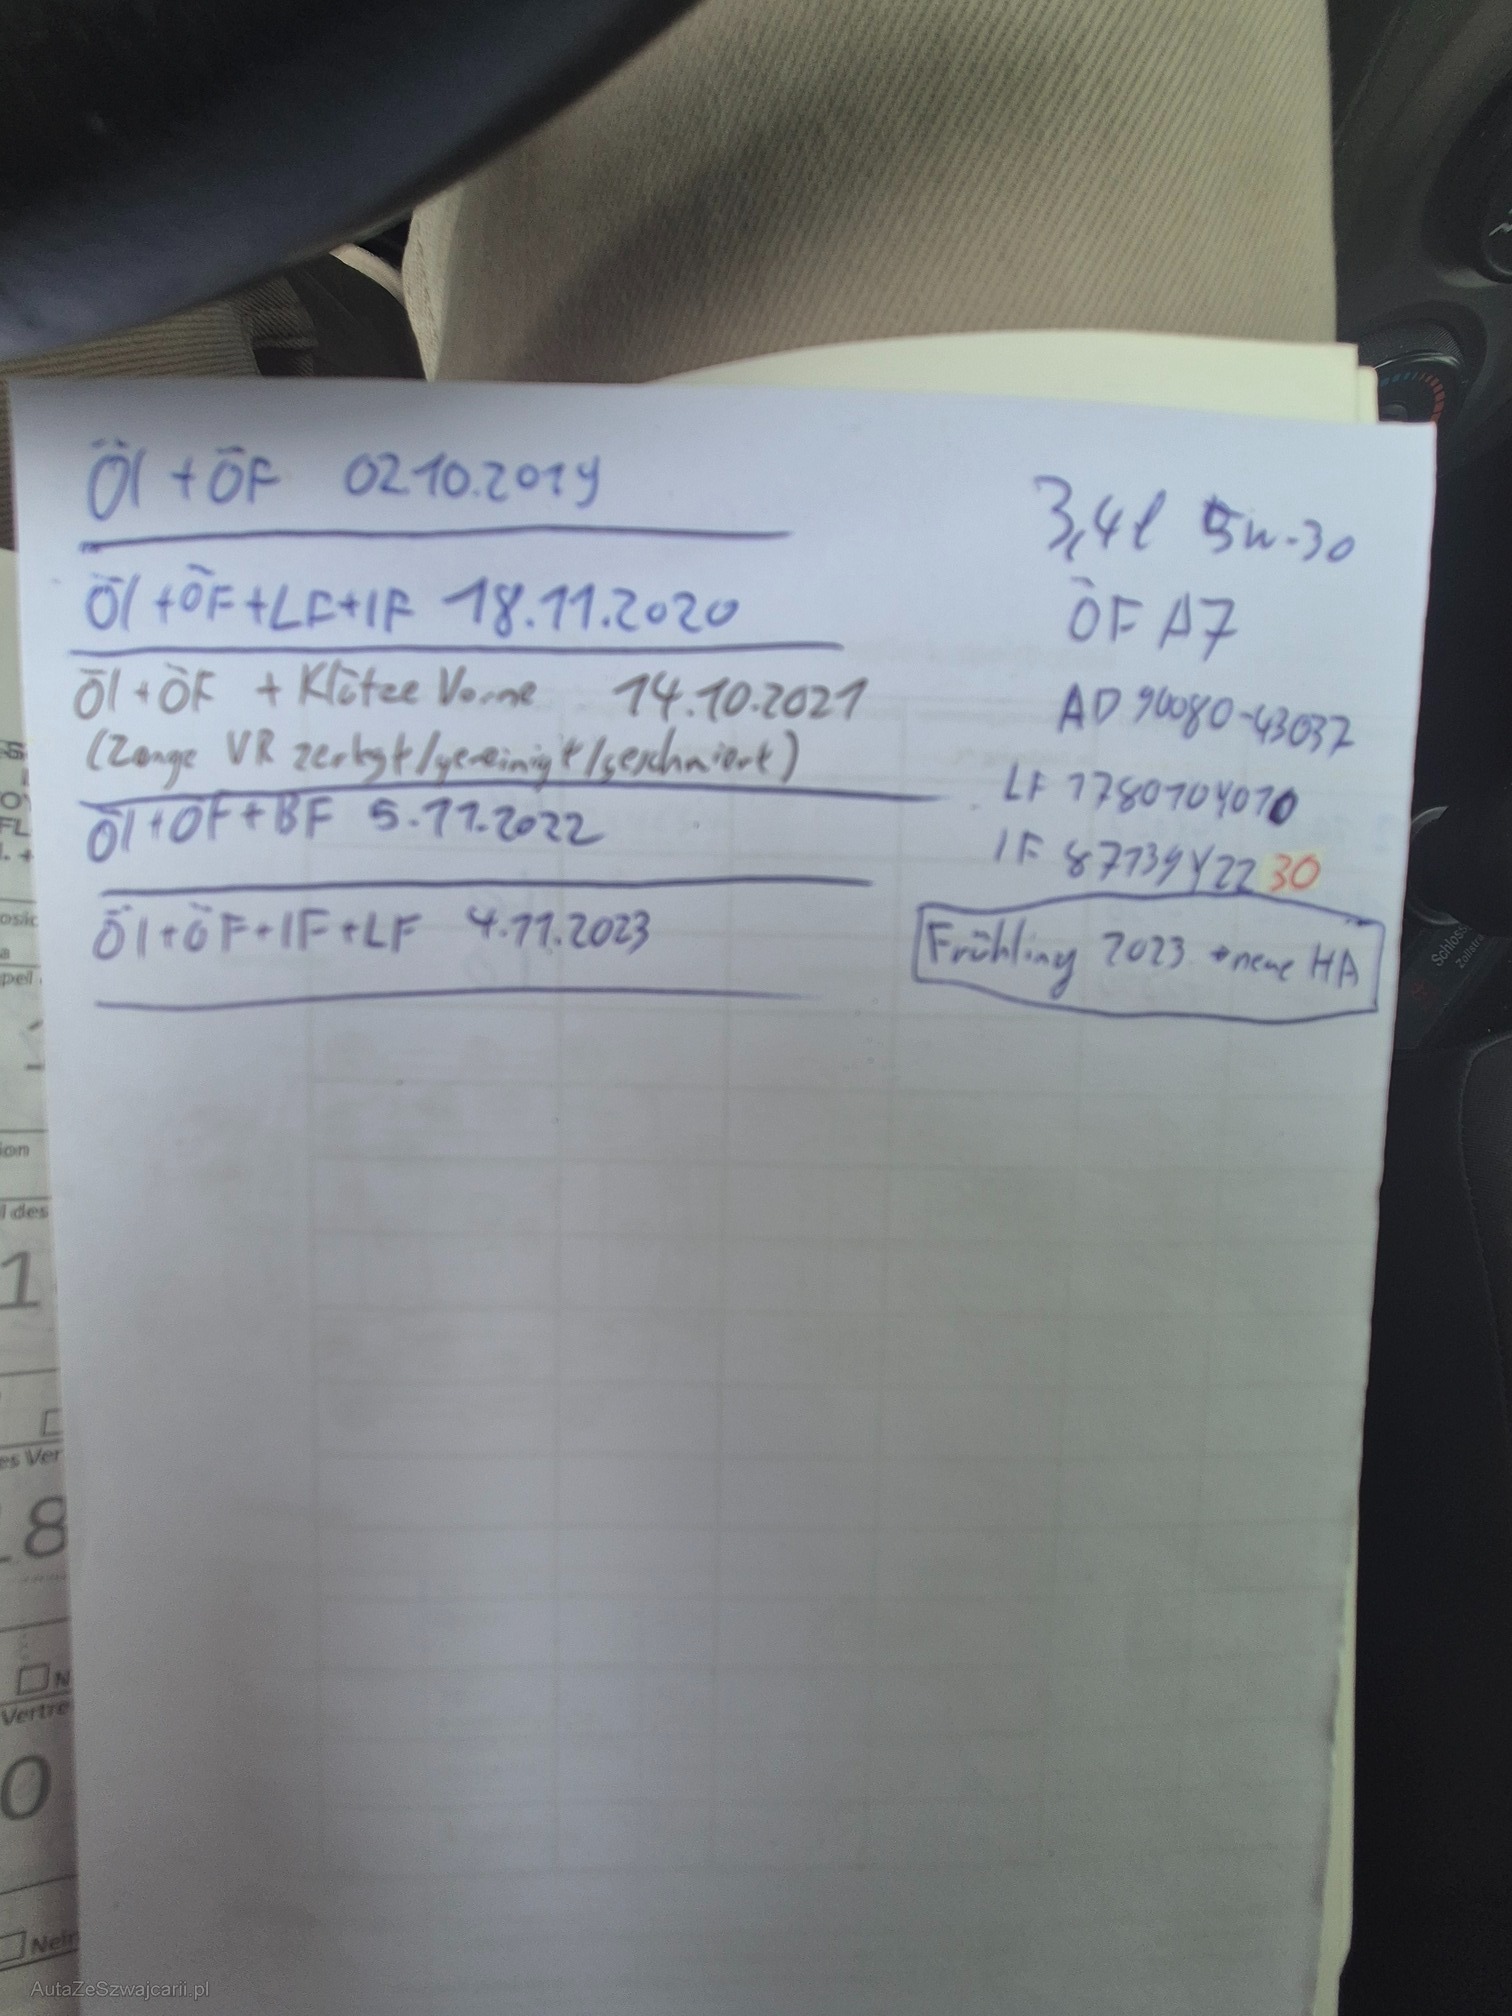 Öl + ÖF 02.10.2019
Öl + ÖF + LF + IF 18.11.2020
Öl + ÖF + Klötze Vorne 14.10.2021
(Zange VR zerlegt/gereinigt/geschmiert)
Öl + ÖF + BF 5.11.2022
Öl + ÖF + IF + LF 4.11.2023
3,4l 5w-30
ÖF A7
AD 90080-43037
LF 178010Y010
IF 87139YZZ30
Frühling 2023 + neue HA
ion
l des
1
es Ver
8
N
Vertre
0
Nein
Schloss
AutaZeSzwajcarii.pl